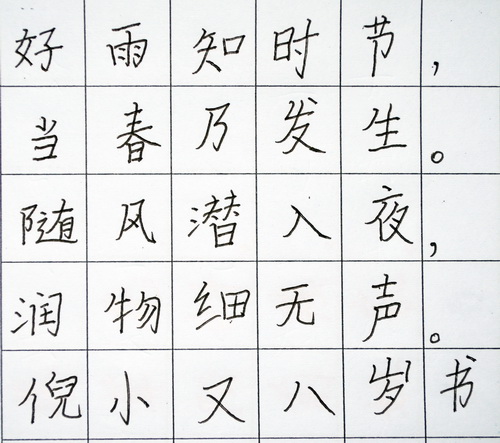 好雨知时节，
当春乃发生。
随风潜入夜，
润物细无声。
倪小又八岁书